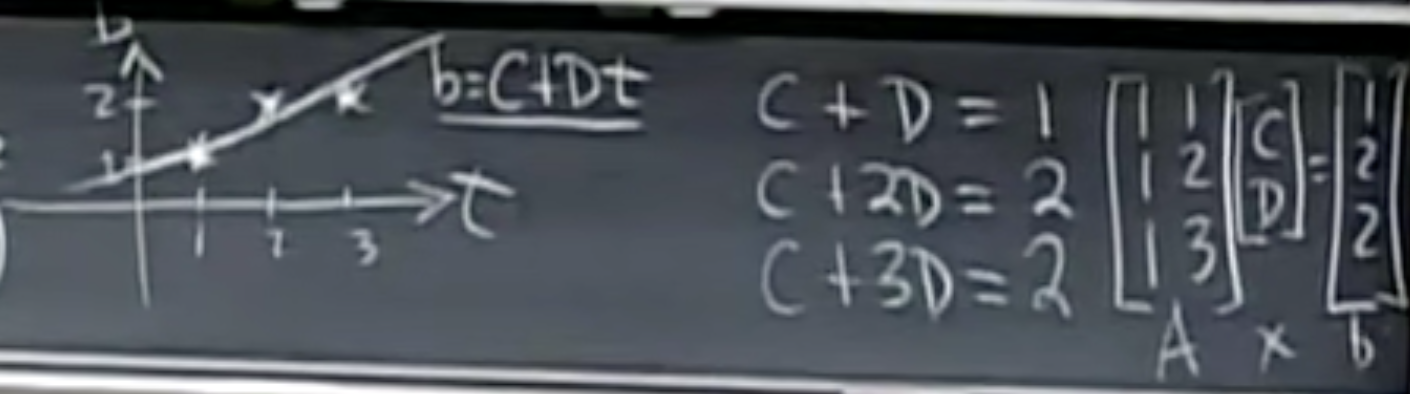 b
2
1
1 2 3
t
b=C+Dt
C + D = 1
C + 2D = 2
C + 3D = 2
[1 1
1 2
1 3] [C
D] = [1
2
2]
A x b